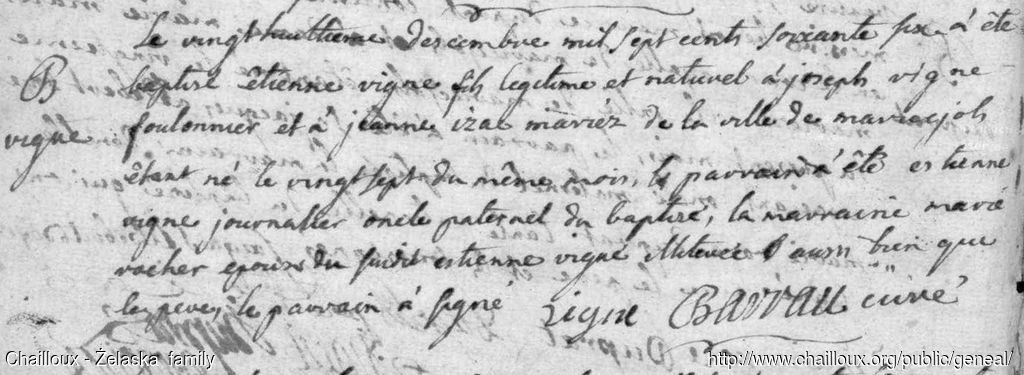 Le vingt huittieme descembre mil sept cents soixante six à été
B
baptisé êtienne vigne fils legitime et naturel à joseph vigne
vigne
foulonnier et à jeanne izac mariéz de la ville de maruejols
êtant né le vingt sept du même mois, le parrain à été estienne
vigne journalier oncle paternel du baptisé, la marraine marie
rocher epouse du susdit estienne vigne illiterée aussi bien que
le pere, le parrain à signé vigne Barrau curé
Chailloux - Żelaska family
http://www.chailloux.org/public/geneal/